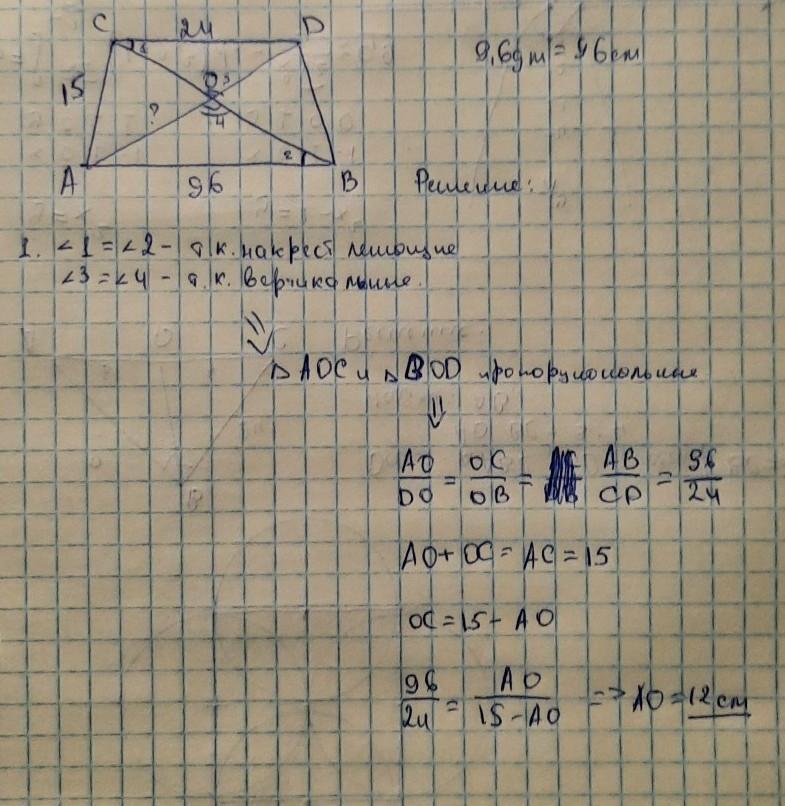 C 24 D
9,6дм = 96см
15 1 O 3
? 4
2
A 96 B
Решение:
1. ∠1 = ∠2 - т.к. накрест лежащие
∠3 = ∠4 - т.к. вертикальные.
⇓
△ AOC и △ BOD пропорциональные
⇓
AO/DO = OC/OB = AB/CD = 96/24
AO + OC = AC = 15
OC = 15 - AO
96/24 = AO/15 - AO => AO = 12 см